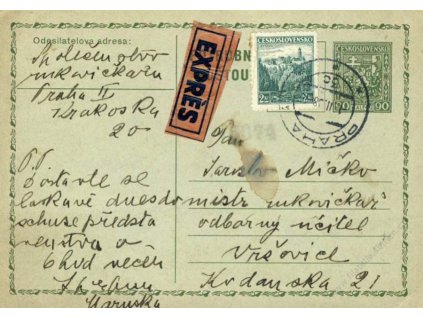 Odesilatelova adresa:
Společenstvo
rukavičkářů
Praha II
Krakovská
20
EXPRÈS
ČESKOSLOVENSKO
ČESKOSLOVENSKO
90
90
PRAHA
Pan
Jaroslav Mičko
mistr rukavičkář
odborný učitel
Vršovice
Kodaňská 21
P.T.
Dostavte se
laskavě dnes do
schůze předsta
venstva o
6 hod večer